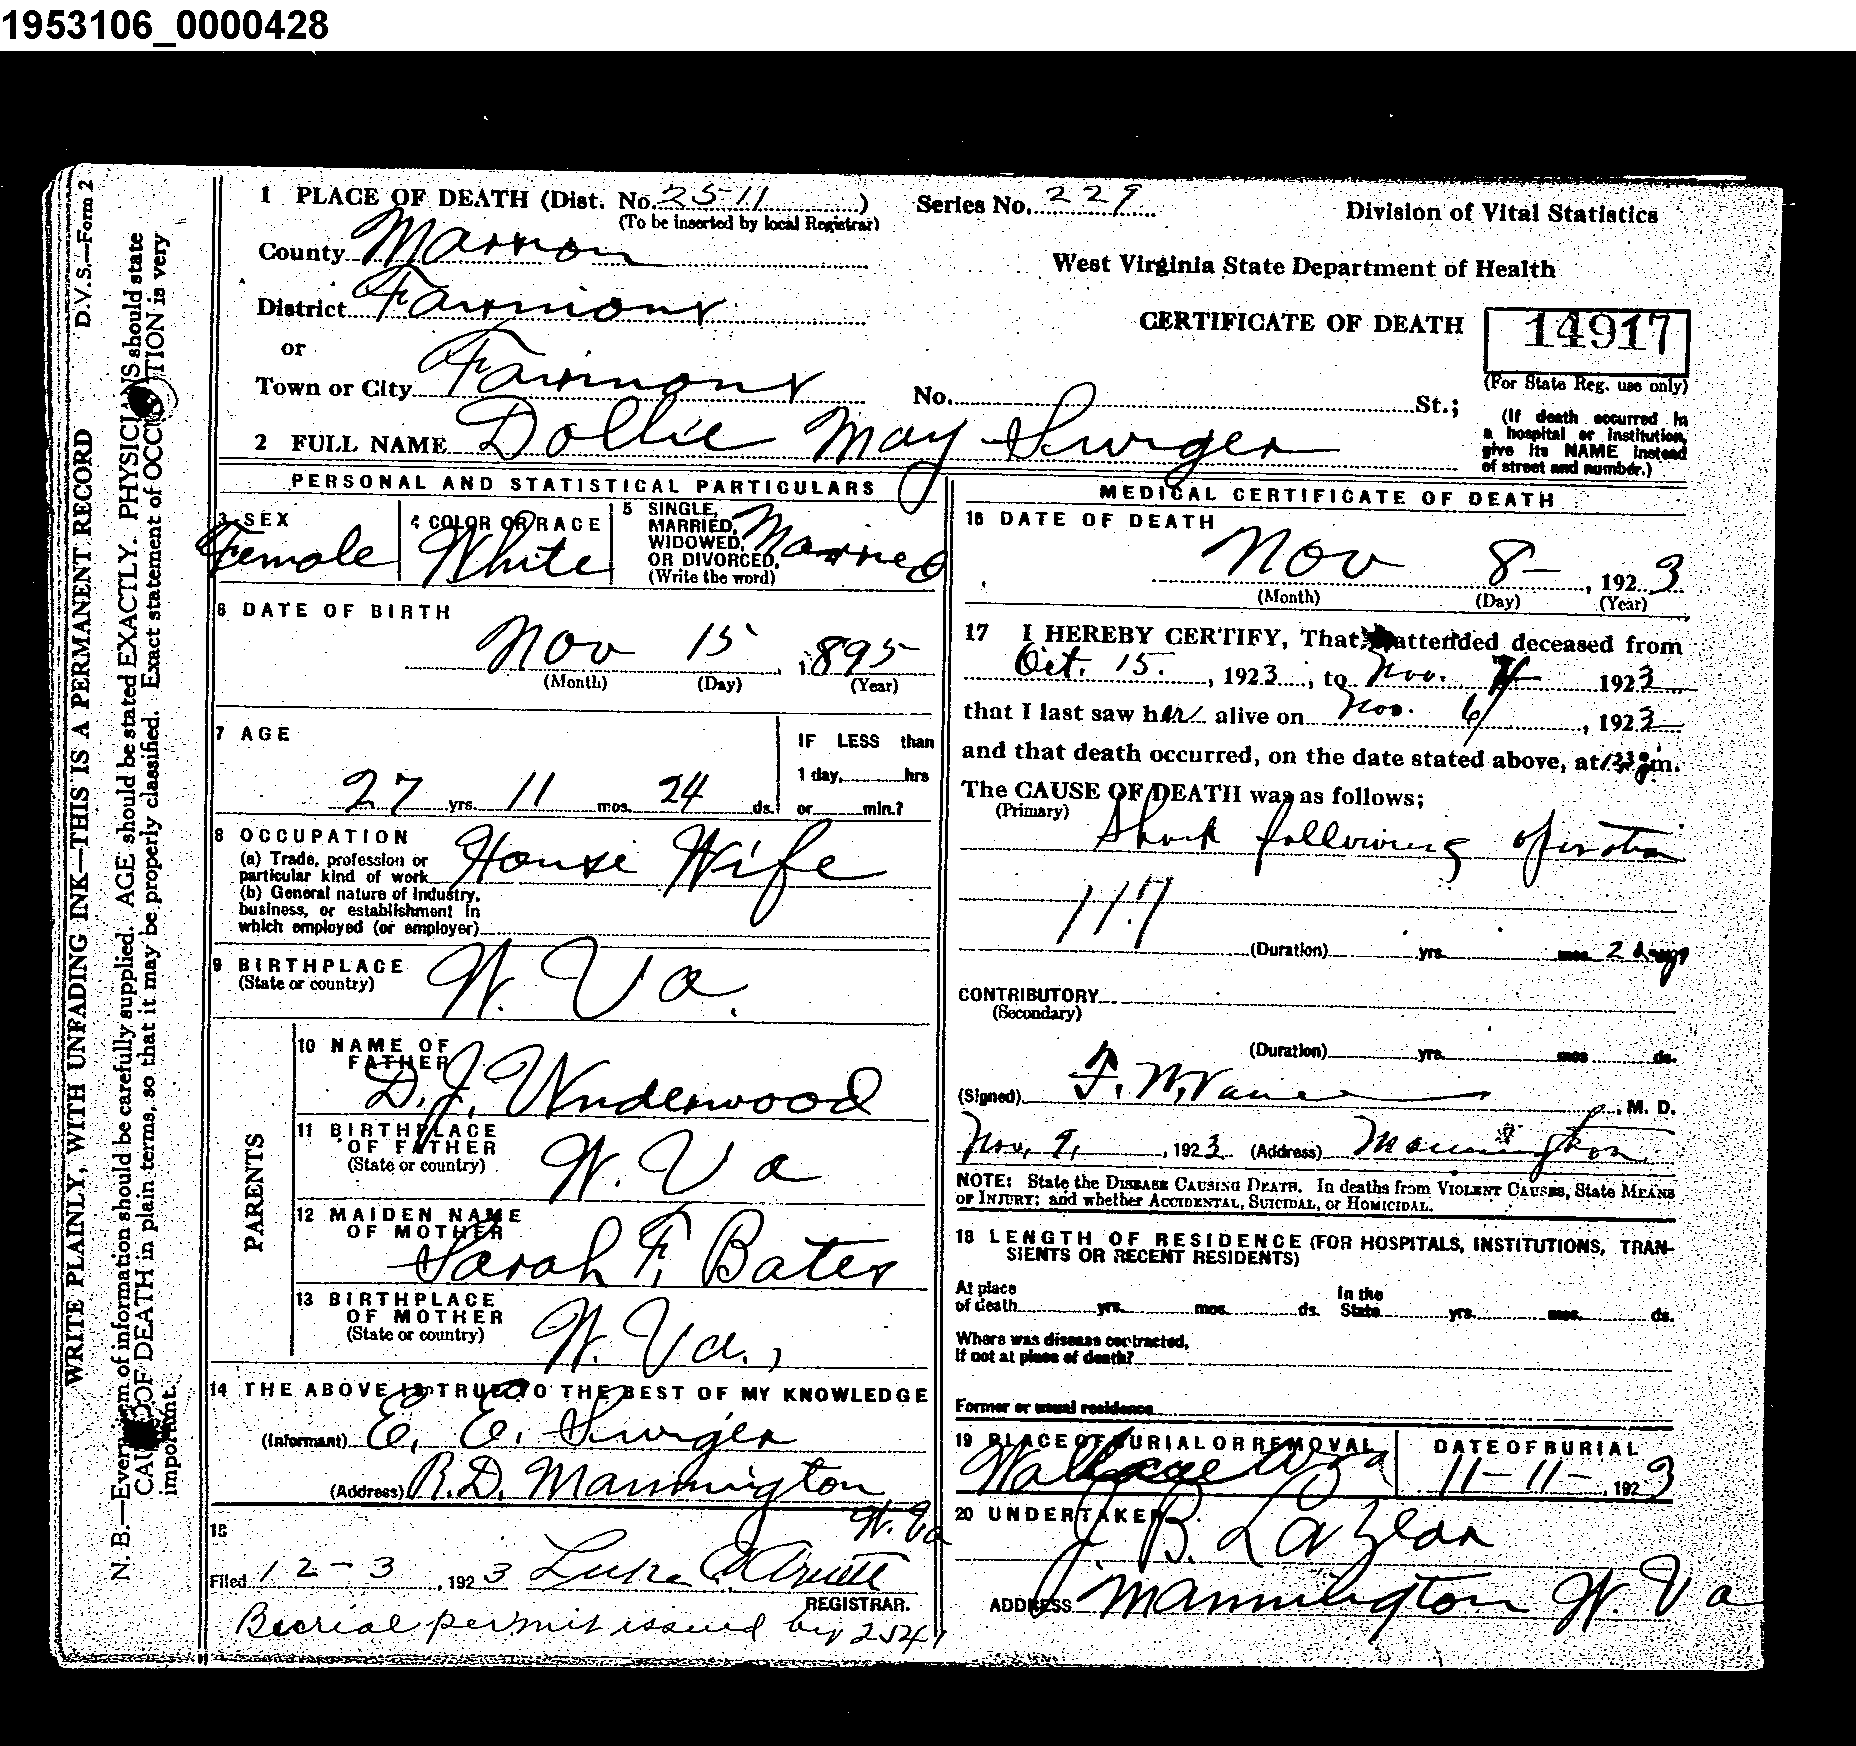 1953106_0000428
D.V.S.—Form 2
WRITE PLAINLY, WITH UNFADING INK—THIS IS A PERMANENT RECORD
N. B.—Every item of information should be carefully supplied. AGE should be stated EXACTLY. PHYSICIANS should state
CAUSE OF DEATH in plain terms, so that it may be properly classified. Exact statement of OCCUPATION is very
important.
1 PLACE OF DEATH (Dist. No. 2511)
(To be inserted by local Registrar)
Series No. 229
Division of Vital Statistics
County Marion
West Virginia State Department of Health
District Fairmont
CERTIFICATE OF DEATH
14917
(For State Reg. use only)
or
Town or City Fairmont
No. St.;
(If death occurred in
a hospital or institution,
give its NAME instead
of street and number.)
2 FULL NAME Dollie May Swiger
PERSONAL AND STATISTICAL PARTICULARS
3 SEX
Female
4 COLOR OR RACE
White
5 SINGLE,
MARRIED,
WIDOWED,
OR DIVORCED,
(Write the word)
Married
6 DATE OF BIRTH
Nov 15, 1895
(Month) (Day) (Year)
7 AGE
27 yrs. 11 mos. 24 ds.
IF LESS than
1 day, hrs
or min.?
8 OCCUPATION
(a) Trade, profession or
particular kind of work House Wife
(b) General nature of industry,
business, or establishment in
which employed (or employer)
9 BIRTHPLACE
(State or country)
W. Va.
PARENTS
10 NAME OF
FATHER
D. J. Underwood
11 BIRTHPLACE
OF FATHER
(State or country)
W. Va
12 MAIDEN NAME
OF MOTHER
Sarah F. Bates
13 BIRTHPLACE
OF MOTHER
(State or country)
W. Va.,
14 THE ABOVE IS TRUE TO THE BEST OF MY KNOWLEDGE
(Informant) E. E. Swiger
(Address) R.D. Mannington
W. Va
15
Filed 12-3, 1923 Luke
REGISTRAR.
Burial permit issued by 2541
MEDICAL CERTIFICATE OF DEATH
16 DATE OF DEATH
Nov 8-, 1923
(Month) (Day) (Year)
17 I HEREBY CERTIFY, That attended deceased from
Oct. 15., 1923, to Nov. 1923
that I last saw her alive on Nov. 6, 1923
and that death occurred, on the date stated above, at m.
The CAUSE OF DEATH was as follows;
(Primary)
Shock following operation
117
(Duration) yrs. mos. 2 days
CONTRIBUTORY
(Secondary)
(Duration) yrs. mos. ds.
(Signed) F. W. M. D.
Nov. 9, 1923 (Address) Mannington
NOTE: State the DISEASE CAUSING DEATH. In deaths from VIOLENT CAUSES, State MEANS
OF INJURY; and whether ACCIDENTAL, SUICIDAL, or HOMICIDAL.
18 LENGTH OF RESIDENCE (FOR HOSPITALS, INSTITUTIONS, TRAN-
SIENTS OR RECENT RESIDENTS)
At place
of death yrs. mos. ds.
In the
State yrs. mos. ds.
Where was disease contracted,
if not at place of death?
Former or usual residence
19 PLACE OF BURIAL OR REMOVAL
Wallace
DATE OF BURIAL
11-11-, 1923
20 UNDERTAKER
J. B. LaZear
ADDRESS Mannington W. Va